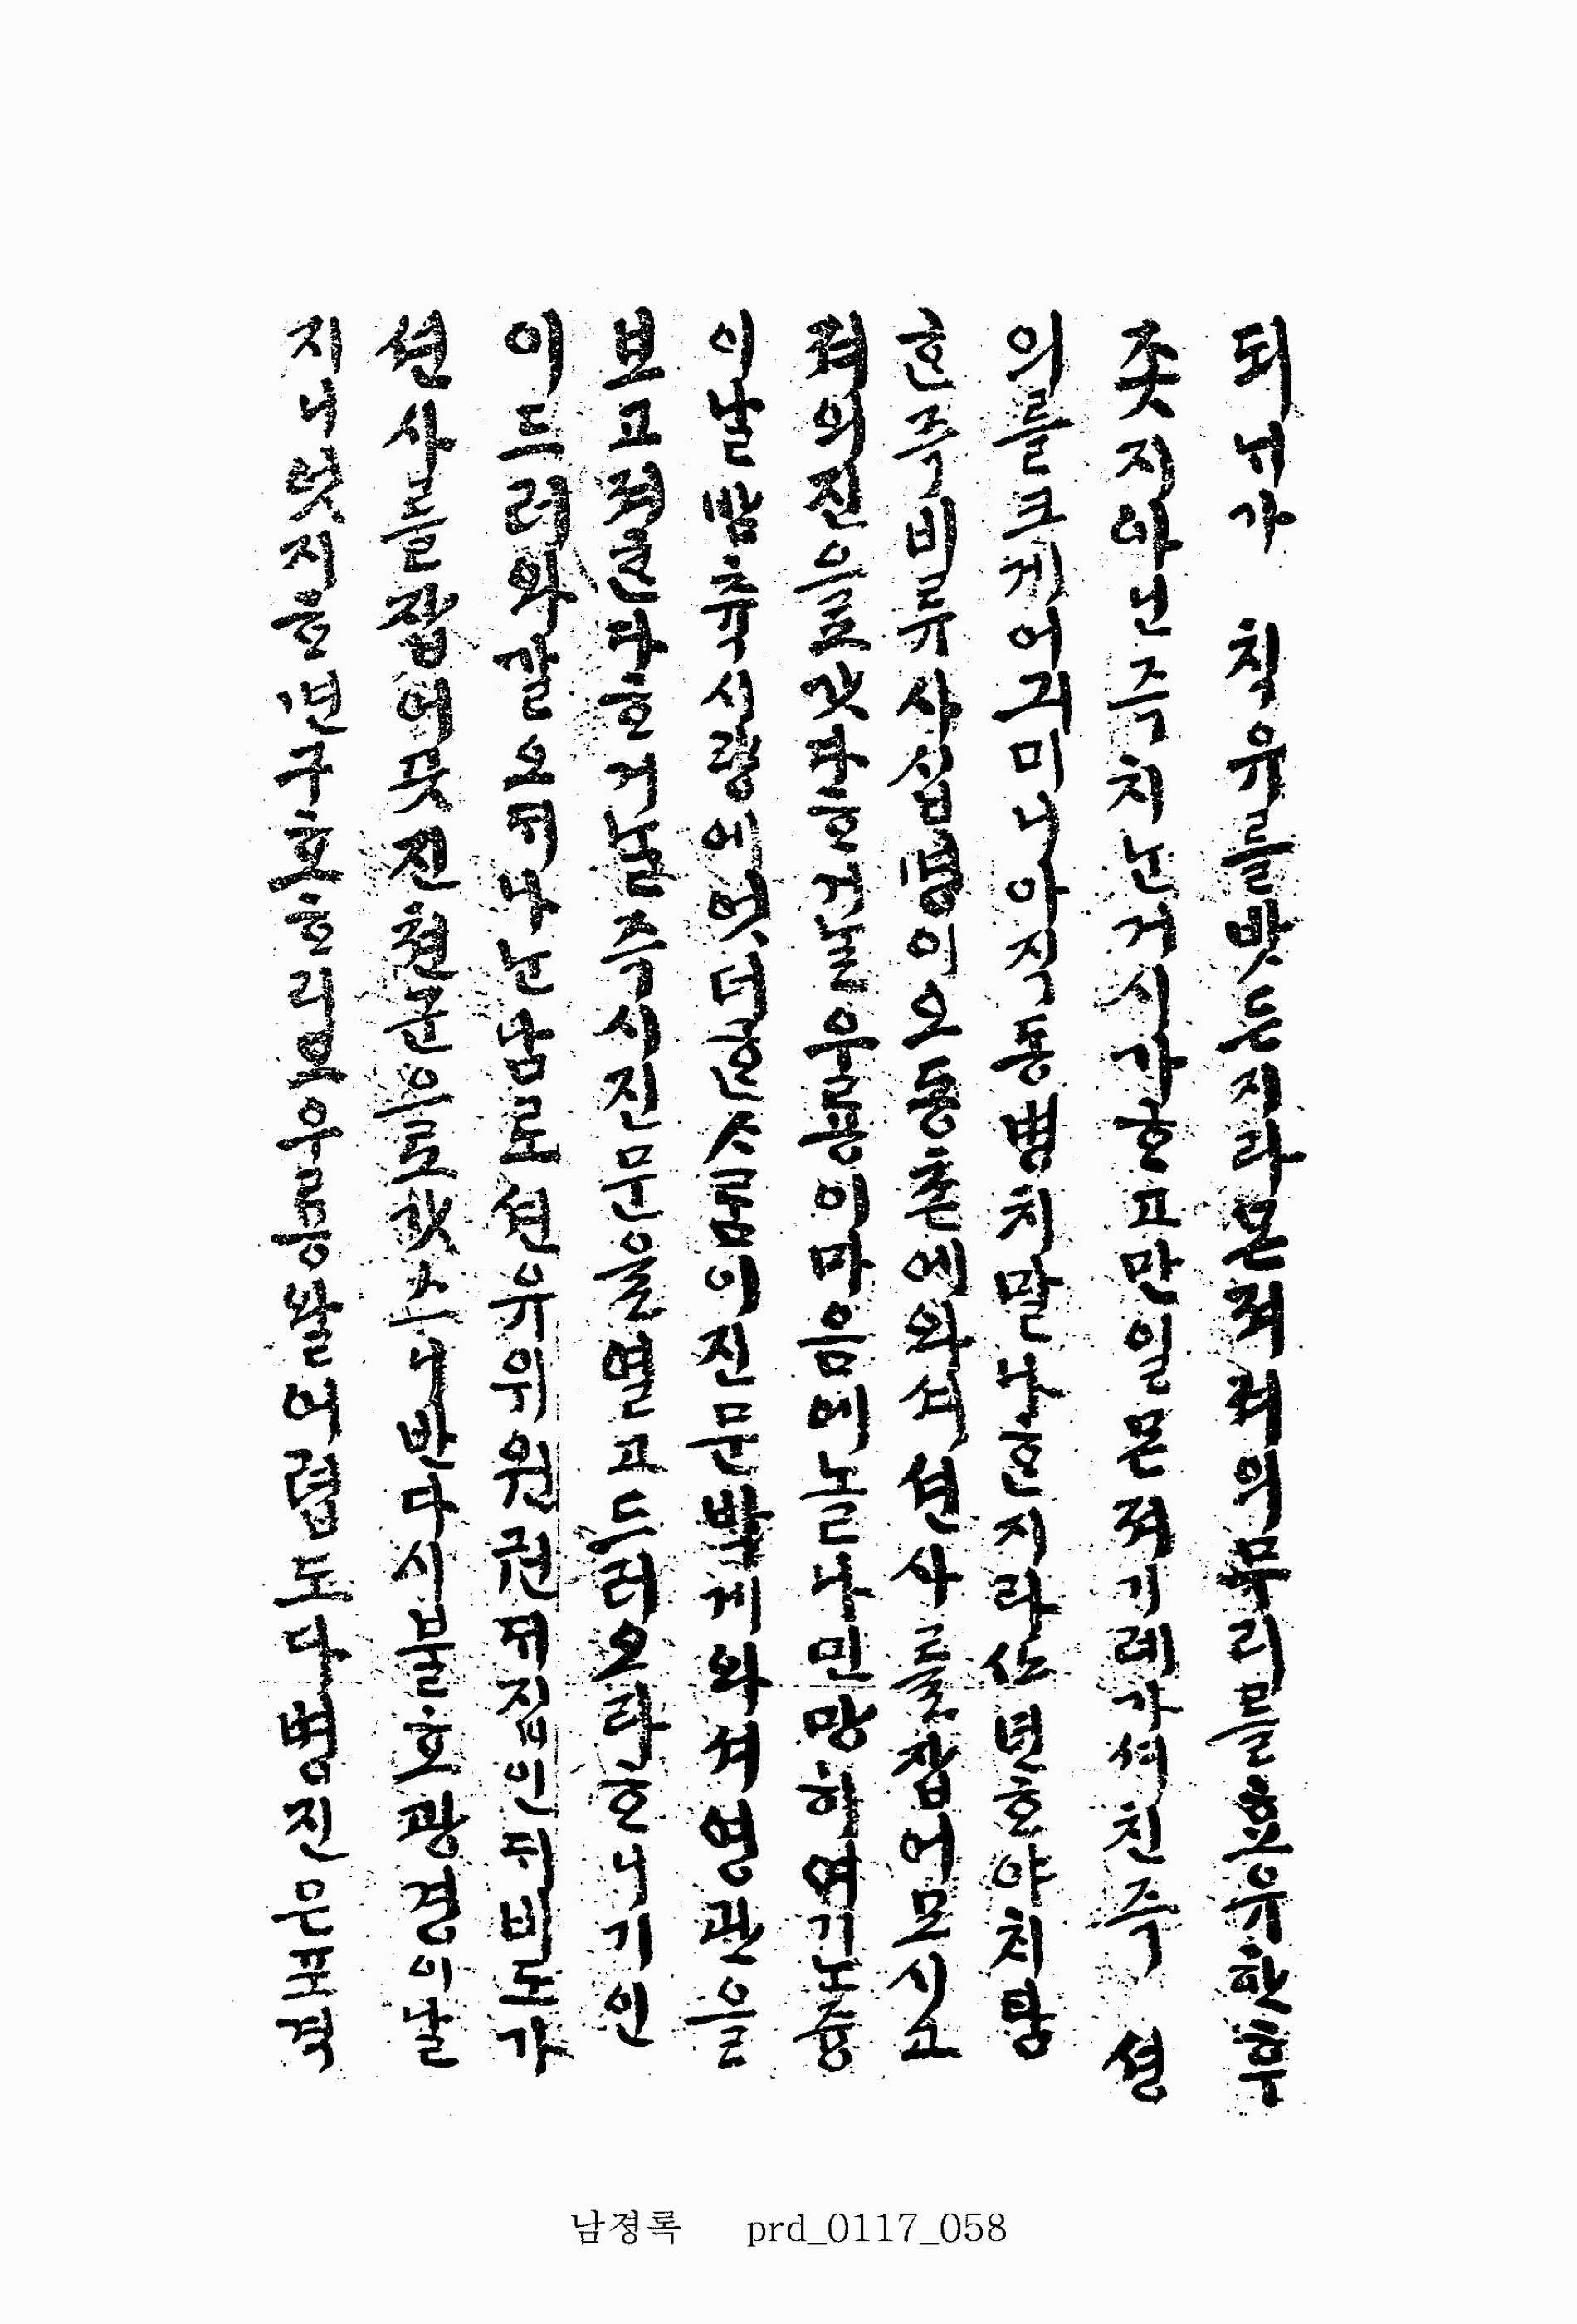 되니가 칙유를밧든지라몬져져의무리를효유한후
좃지아닌즉치는거시가ᄒᆞ고만일몬져기례가셔친즉 셩
의를크게어긔미니아직동병치말나ᄒᆞᆫ지라仁변ᄒᆞ야치탐
ᄒᆞᆫ즉비류사십명이오동촌에와셔션사를잡어모시고
져의진으로갓다ᄒᆞ거ᄂᆞᆯ우룡이마음에놀나민망히여기ᄂᆞᆫ즁
이날밤츅시량에엇더ᄒᆞᆫᄉᆞᄅᆞᆷ이진문밧게와셔영관을
보고져ᄒᆞᆫ다ᄒᆞ거ᄂᆞᆯ즉시진문을열고드러오라ᄒᆞ니기인
이드러와갈오ᄃᆡ나ᄂᆞᆫ남로션유위원권ᄌᆔ집인ᄃᆡ비도가
션사를잡어뭇진쳔군으로갓스니반다시불호광경이날
지니엇지ᄒᆞ면구호ᄒᆞ리오우룡왈어렵도다병진은포격
남졍록 prd_0117_058